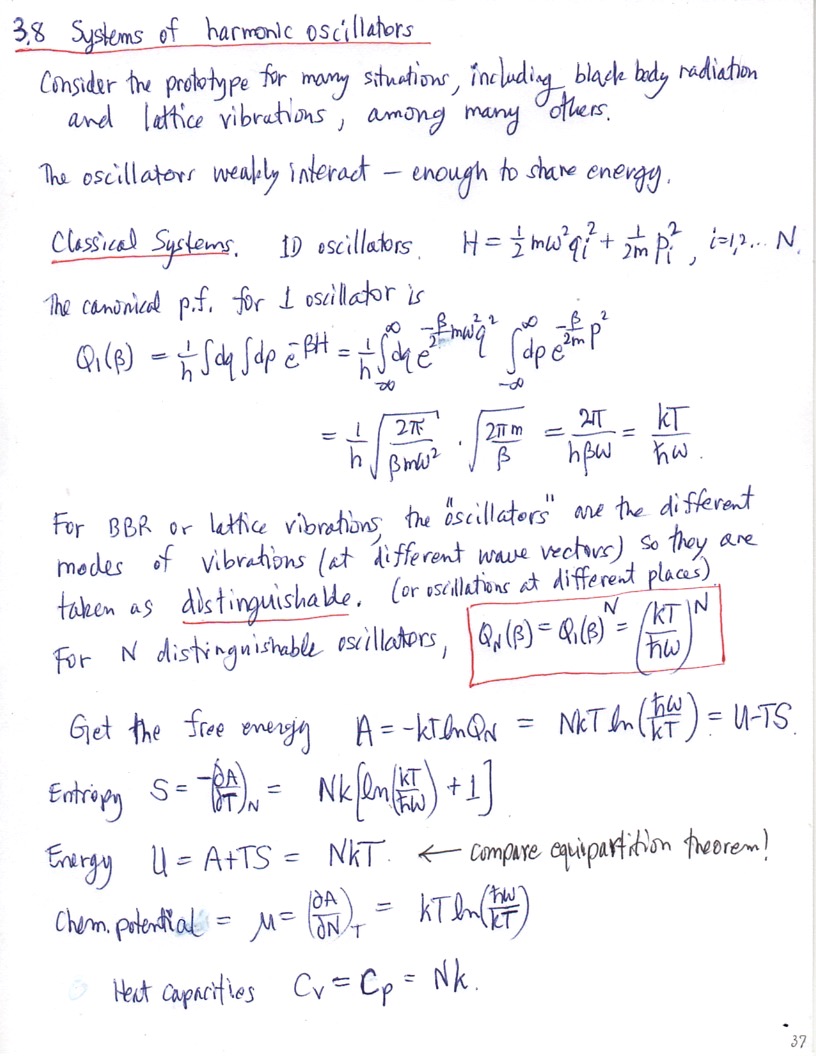 3.8 Systems of harmonic oscillators
Consider the prototype for many situations, including black body radiation
and lattice vibrations, among many others.
The oscillators weakly interact – enough to share energy.
Classical Systems. 1D oscillators. H = ½ mω²qᵢ² + 1/2m pᵢ², i=1,2... N.
The canonical p.f. for 1 oscillator is
Q₁(β) = 1/h ∫dq ∫dp e^{-βH} = 1/h ∫_{-∞}^{∞} dq e^{-β/2 mω²q²} ∫_{-∞}^{∞} dp e^{-β/2m p²}
= 1/h √(2π/βmω²) · √(2πm/β) = 2π/hβω = kT/ħω.
For BBR or lattice vibrations, the "oscillators" are the different
modes of vibrations (at different wave vectors) so they are
taken as distinguishable. (or oscillations at different places)
For N distinguishable oscillators, Q_N(β) = Q₁(β)^N = (kT/ħω)^N
Get the free energy A = -kT ln Q_N = NkT ln(ħω/kT) = U-TS.
Entropy S = -(∂A/∂T)_N = Nk[ln(kT/ħω) + 1]
Energy U = A+TS = NkT. ← compare equipartition theorem!
Chem. potential = μ = (∂A/∂N)_T = kT ln(ħω/kT)
Heat Capacities C_V = C_p = Nk.
37